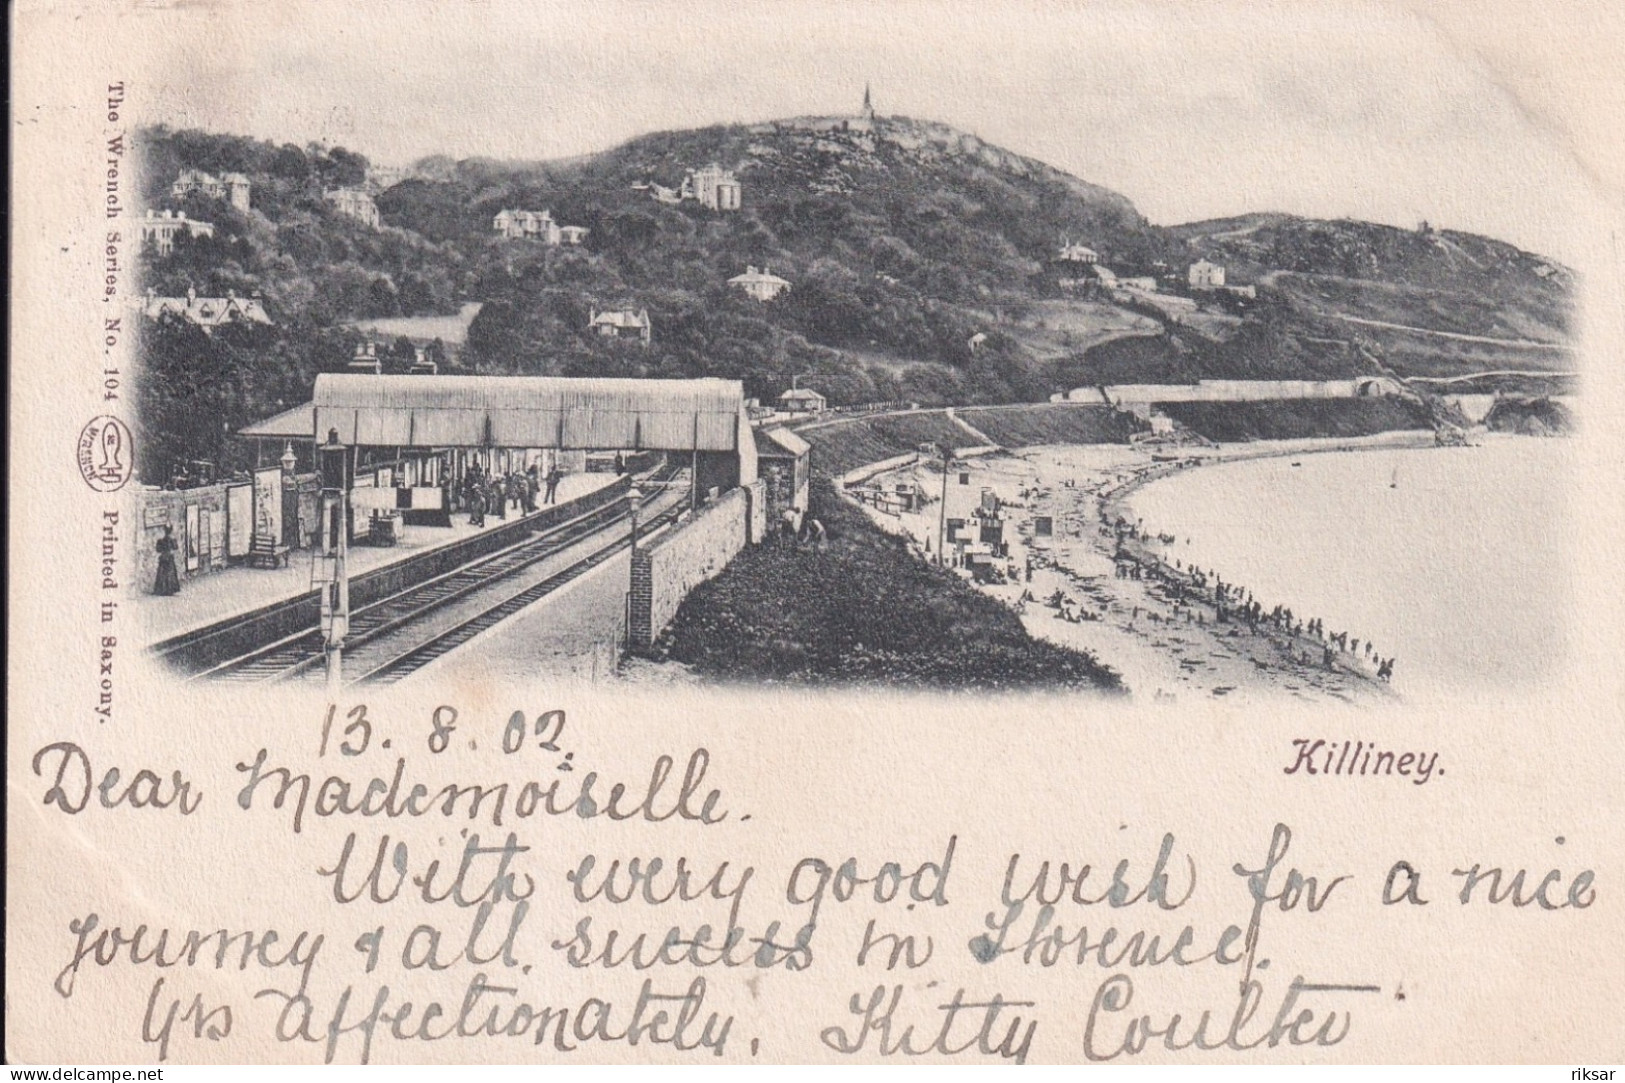 The Wrench Series, No. 104
WRENCH
Printed in Saxony.
Killiney.
13.8.02.
Dear Mademoiselle.
With every good wish for a nice
journey & all success in Florence.
Yrs affectionately. Kitty Coulter
www.delcampe.net
riksar